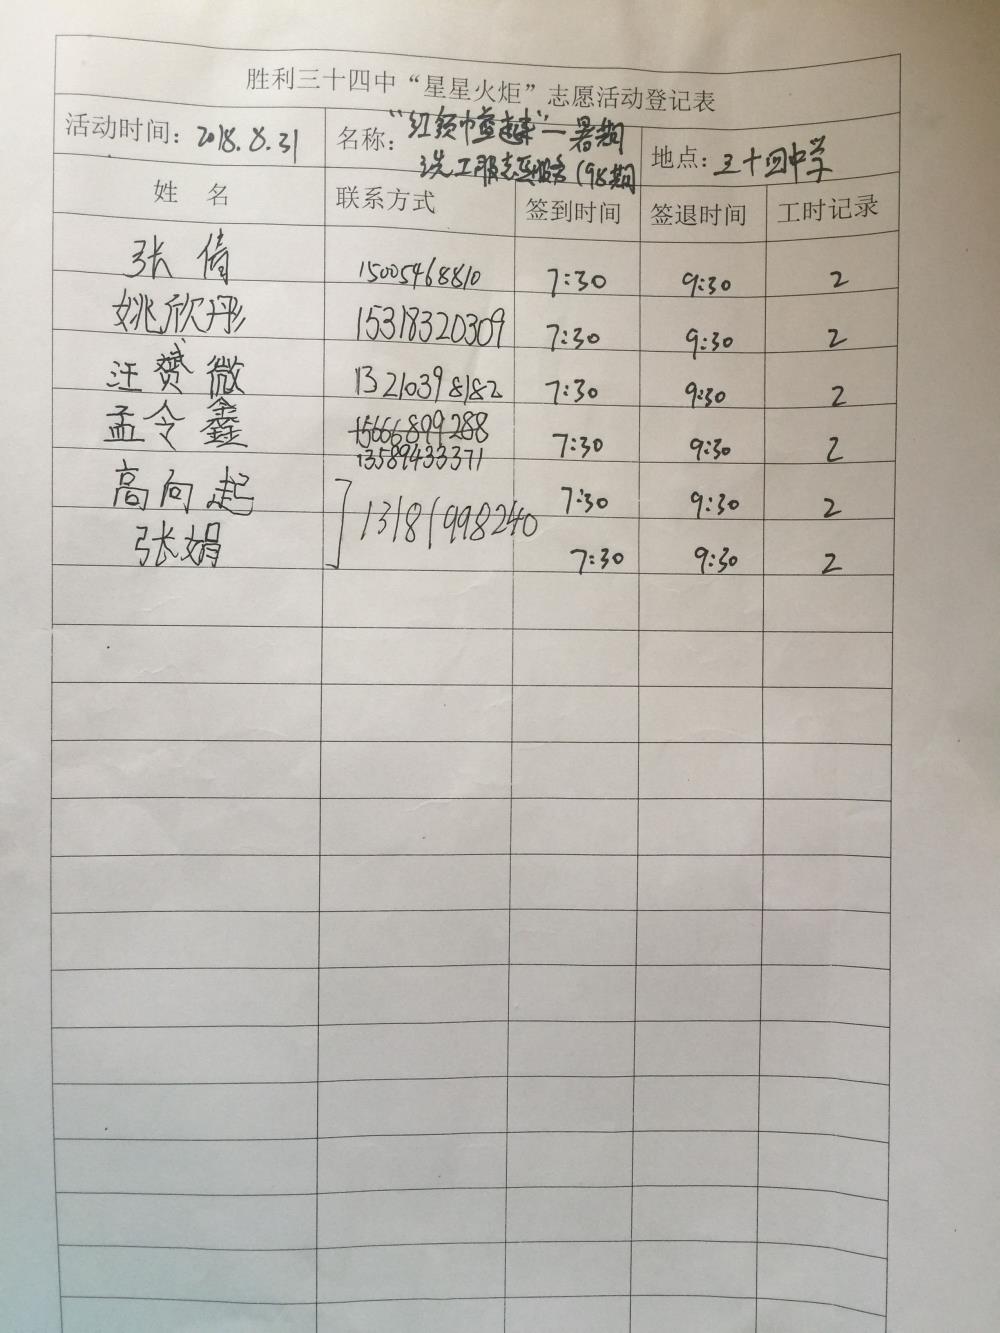 胜利三十四中“星星火炬”志愿活动登记表
活动时间：2018.8.31 名称：“红领巾益起来”—暑期 地点：三十四中学
洗工服志愿服务（98期
姓 名 联系方式 签到时间 签退时间 工时记录
张倩 15005468810 7:30 9:30 2
姚欣彤 15318320309 7:30 9:30 2
汪赟微 13210398182 7:30 9:30 2
孟令鑫 15666899288 7:30 9:30 2
13589433371
高向起 13181998240 7:30 9:30 2
张娟 7:30 9:30 2